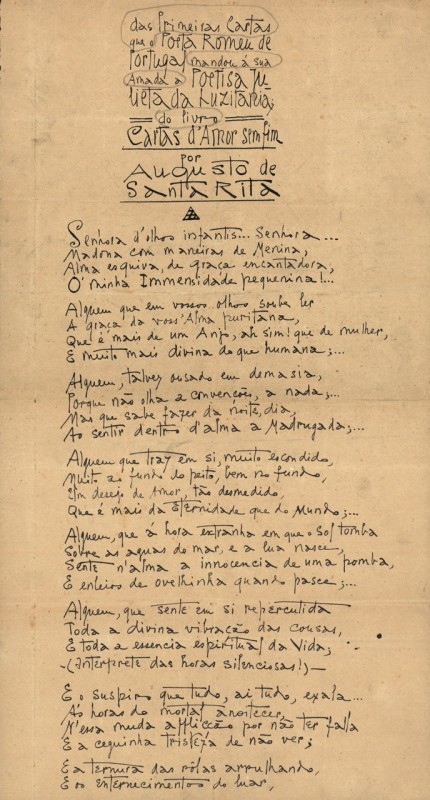 das Primeiras Cartas
que o Poeta Romeu de
Portugal mandou á sua
Amada a Poetisa Ju-
lieta da Luzitania;
do livro
Cartas d'Amor sem fim
por
Augusto de
Santa Rita
Senhora d'olhos infantis... Senhora...
Madona com maneiras de Menina,
Alma esquiva, de graça encantadora,
O' minha Immensidade pequenina!...
Alguem que em vossos olhos soube ler
A graça da voss'Alma puritana,
Que é mais de um Anjo, ah sim! que de mulher,
E muito mais divina do que humana;...
Alguem, talvez ousado em demasia,
Porque não olha a convenções, a nada;...
Mas que sabe fazer da noite, dia,
Ao sentir dentro d'alma a Madrugada;...
Alguem que traz em si, muito escondido,
Muito ao fundo do peito, bem no fundo,
Um desejo de Amor, tão desmedido,
Que é mais da Eternidade que do Mundo;...
Alguem, que á hora extranha em que o Sol tomba
Sobre as aguas do mar, e a lua nasce,
Sente n'alma a innocencia de uma pomba,
E enleios de ovelhinha quando pasce;...
Alguem, que sente em si repercutida
Toda a divina vibração das cousas,
E toda a essencia espiritual da Vida;
(Interprete das horas silenciosas!)
E o suspiro que tudo, ai tudo, exala...
Ás horas do mortal anoitecer,
N'essa muda afflicção por não ter falla
E a ceguinha tristeza de não ver;
E a ternura das rôlas arrulhando,
E os enternecimentos do luar,